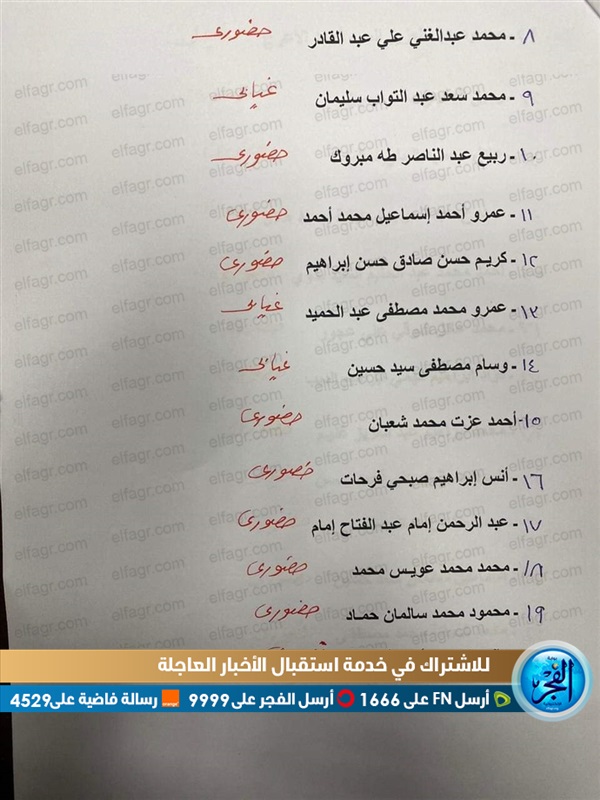 ٨ - محمد عبدالغني علي عبد القادر حضورى
٩ - محمد سعد عبد التواب سليمان غيابى
١٠ - ربيع عبد الناصر طه مبروك حضورى
١١ - عمرو أحمد إسماعيل محمد أحمد حضورى
١٢ - كريم حسن صادق حسن إبراهيم حضورى
١٣ - عمرو محمد مصطفى عبد الحميد غيابى
١٤ - وسام مصطفى سيد حسين غيابى
١٥ - أحمد عزت محمد شعبان حضورى
١٦ - أنس إبراهيم صبحي فرحات حضورى
١٧ - عبد الرحمن إمام عبد الفتاح إمام حضورى
١٨ - محمد محمد عويس محمد حضورى
١٩ - محمود محمد سالمان حماد حضورى
elfagr.com
للاشتراك في خدمة استقبال الأخبار العاجلة
أرسل FN على 1666 أرسل الفجر على 9999 orange رسالة فاضية على 4529
بوابة الفجر